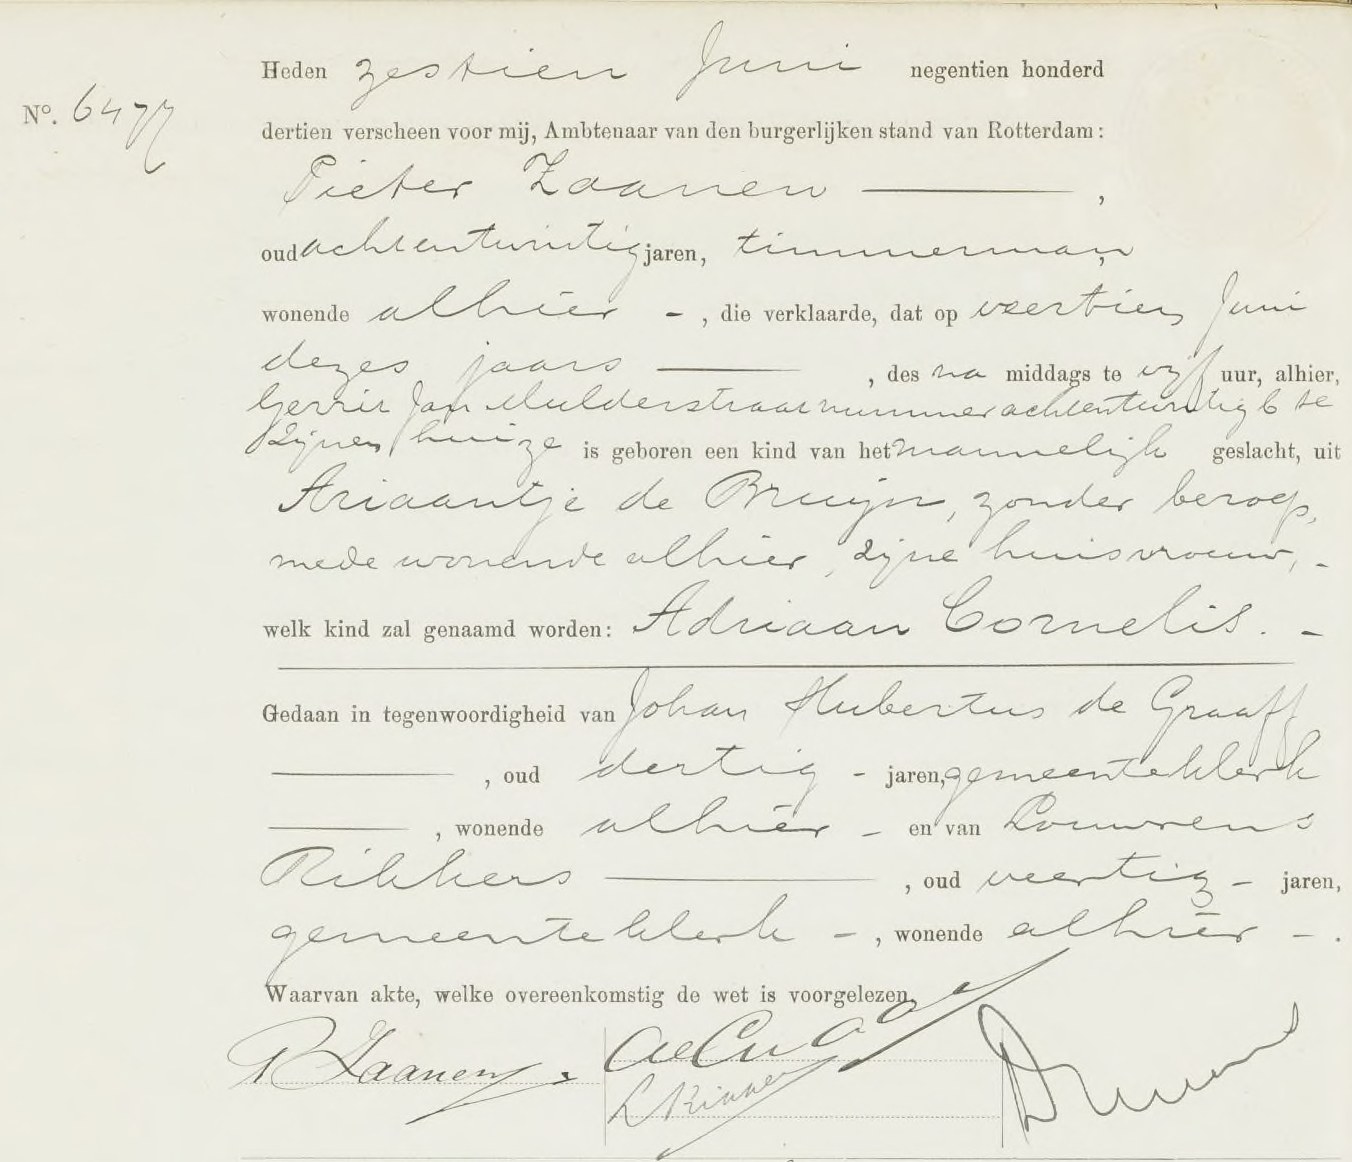 Heden zestien Juni negentien honderd
No. 6477
dertien verscheen voor mij, Ambtenaar van den burgerlijken stand van Rotterdam:
Pieter Zaanen ,
oud achtentwintig jaren, timmerman,
wonende alhier - , die verklaarde, dat op veertien Juni
dezes jaars , des na middags te vijf uur, alhier,
Gerrit Jan Mulderstraat nummer achtentwintig b te
zijnen huize is geboren een kind van het mannelijk geslacht, uit
Ariaantje de Bruijn, zonder beroep,
mede wonende alhier, zijne huisvrouw, -
welk kind zal genaamd worden: Adriaan Cornelis. -
Gedaan in tegenwoordigheid van Johan Hubertus de Graaff
, oud dertig - jaren, gemeenteklerk
, wonende alhier - en van Louwrens
Rikkers , oud veertig - jaren,
gemeenteklerk - , wonende alhier - .
Waarvan akte, welke overeenkomstig de wet is voorgelezen,
P Zaanen
L Rikkers